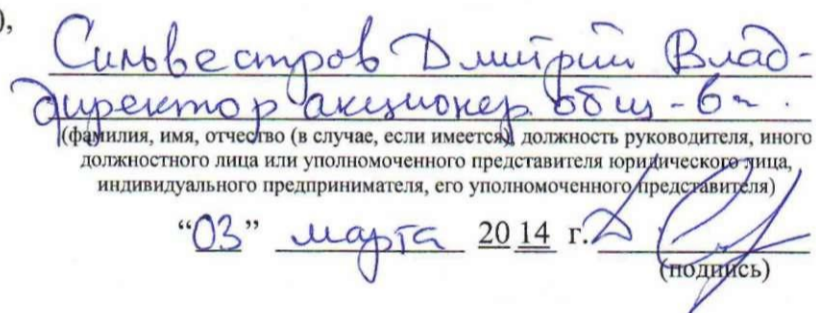 ),
Сильвестров Дмитрий Влад-
директор акционер. общ-ва.
(фамилия, имя, отчество (в случае, если имеется), должность руководителя, иного
должностного лица или уполномоченного представителя юридического лица,
индивидуального предпринимателя, его уполномоченного представителя)
“03” марта 20 14 г.
(подпись)